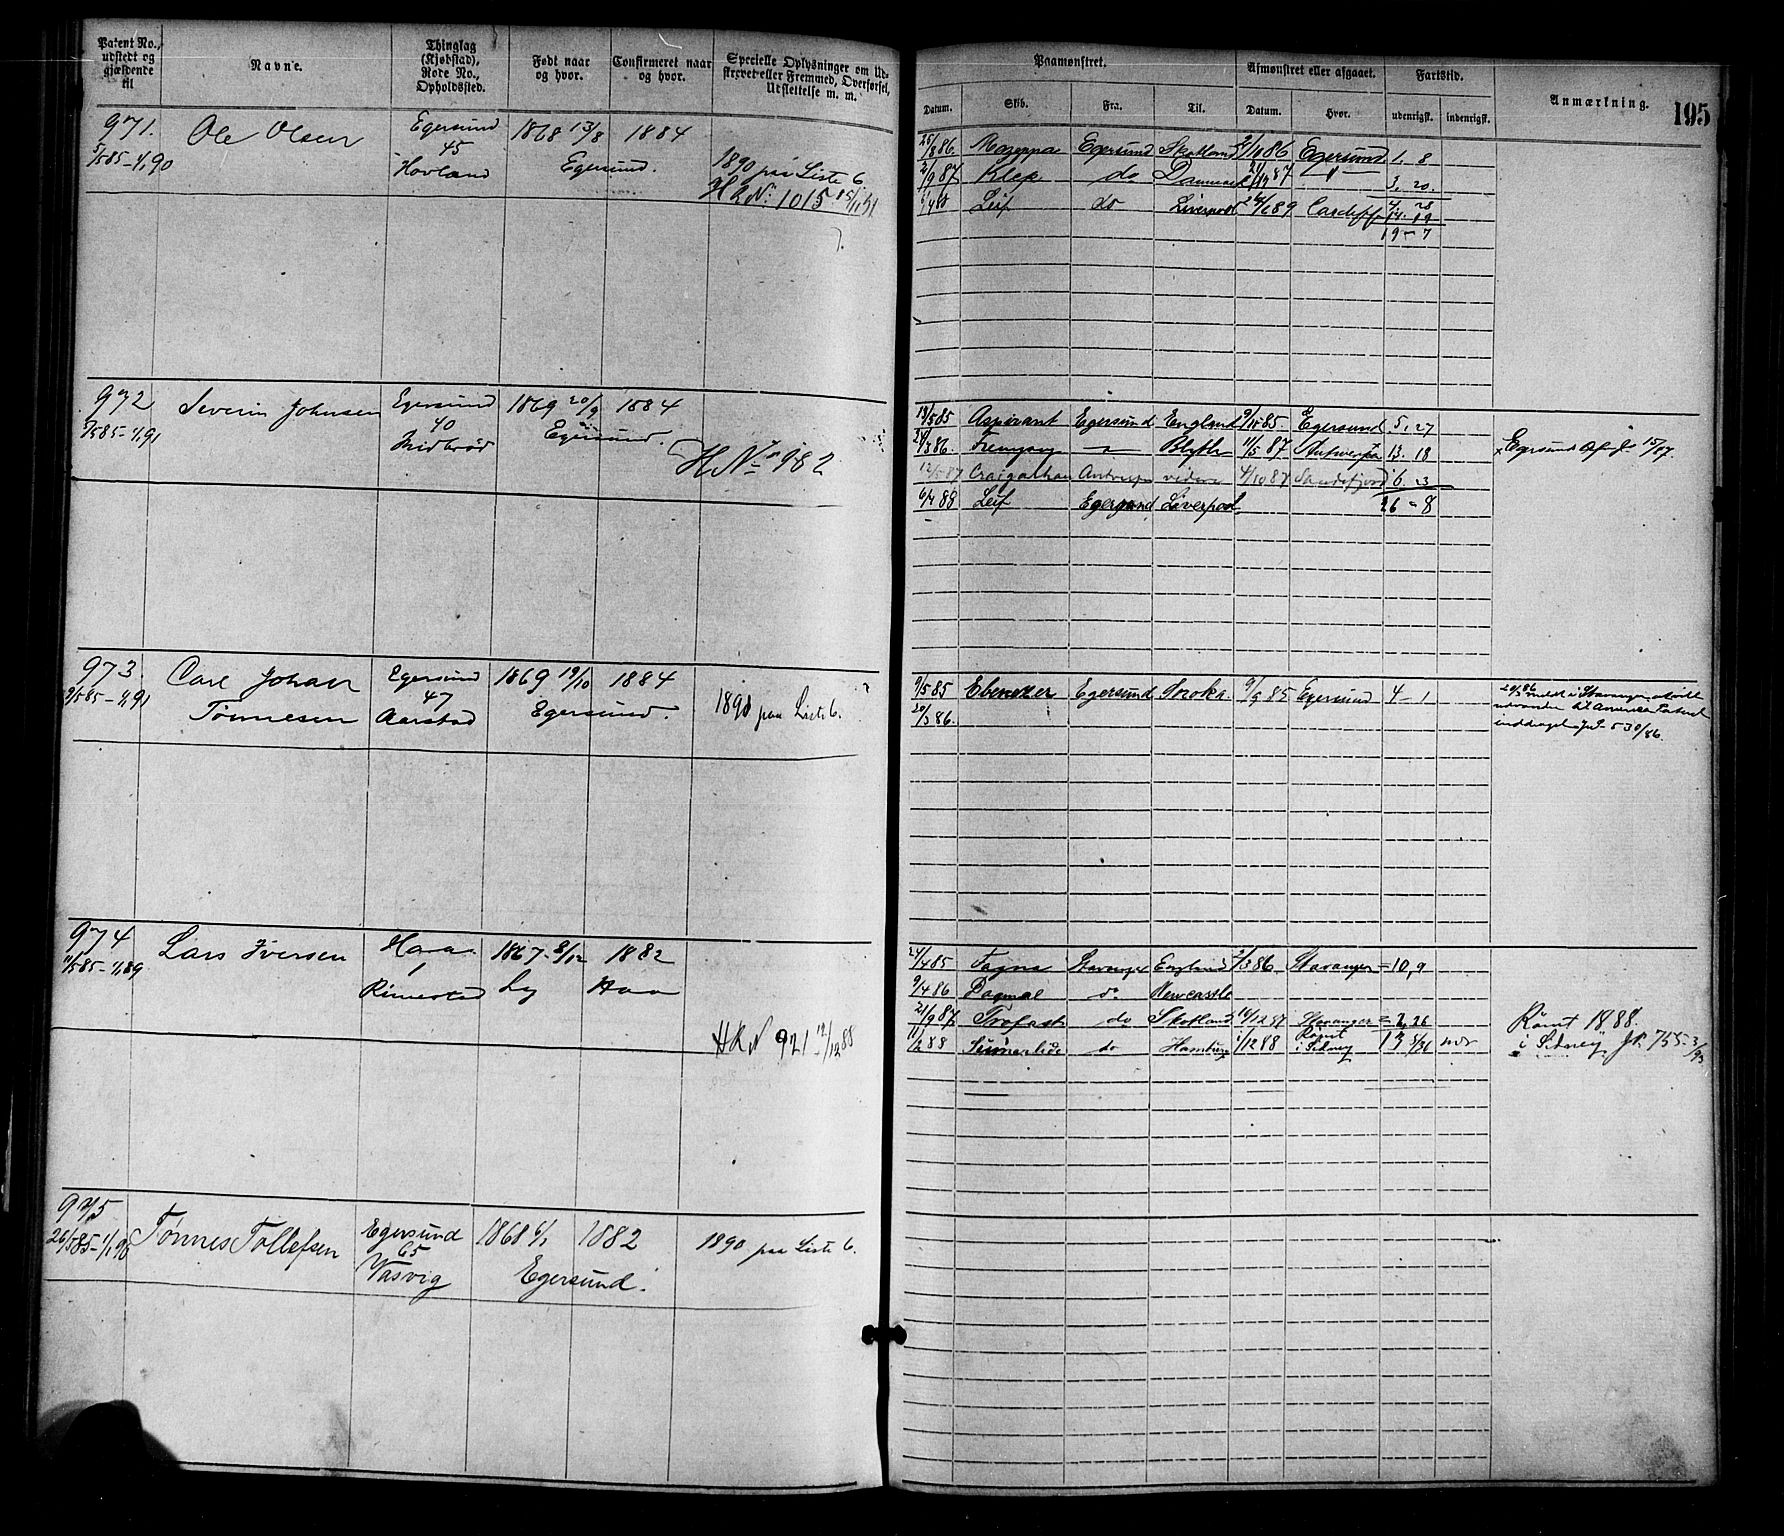 Patent No., udstedt og gjældende til
Navne.
Thinglag (Kjøbstad), Rode No., Opholdssted.
Født naar og hvor.
Confirmeret naar og hvor.
Specielle Oplysninger om Udskrevet eller Fremmed, Overførsel, Udslettelse m. m.
971. Ole Olsen Egersund 1868 13/8 1884
5/5 85 - 1/1 90 45
Hovland Egersund. 1890 paa Liste 6
H R N: 1015
972 Severin Johnsen Egersund 1869 20/9 1884
40 Egersund.
Midbrød H. No 982
973 Carl Johan Egersund 1869 19/10 1884
9/5 85 - 1/1 91 Tønnesen 47
Aarstad Egersund. 1890 paa Liste 6.
974 Lars Iversen Haa 1867 8/12 1882
11/5 85 - 1/1 89 1
Rimestad Ly Haa
H R N 921 12/12 88
975 Tønnes Tollefsen Egersund 1868 6/1 1882
26/5 85 - 1/1 90 65 1890 paa Liste 6.
Vasvig Egersund.
Paamønstret. Afmønstret eller afgaaet. Fartstid.
Anmærkning. 195
Datum. Skib. Fra. Til. Datum. Hvor. udenrigsk. indenrigsk.
25/8 86 Mazeppa Egersund Skotland 86 Egersund 1. 8
87 Klep do Danmark 87 " 3. 20.
Leif do Liverpool 89 Cardiff 14. 9
19 - 7
13/5 85 Aspirant Egersund England 9/11 85 Egersund 5. 27
Fremgang " Blyth 11/5 87 Antwerpen 13. 18 Egersund 15/87.
12/5 87 Antwerpen videre 4/10 87 Sandefjord 6. 23
6/4 88 Leif Egersund Liverpool
26 - 8
9/5 85 Ebenezer Egersund Soroka. 9/9 85 Egersund 4 - 1
20/3 86. America
24/4 85 Fagna Stavanger England 2/3 86 Stavanger 10, 9
9/4 86 Dagmar do Newcastle
21/9 87 Trofast do Skotland 14/12 87 Stavanger 2, 26
11/2 88 do Hamburg 1/12 88 Rømt i Sidney 13
Rømt 1888.
i Sidney